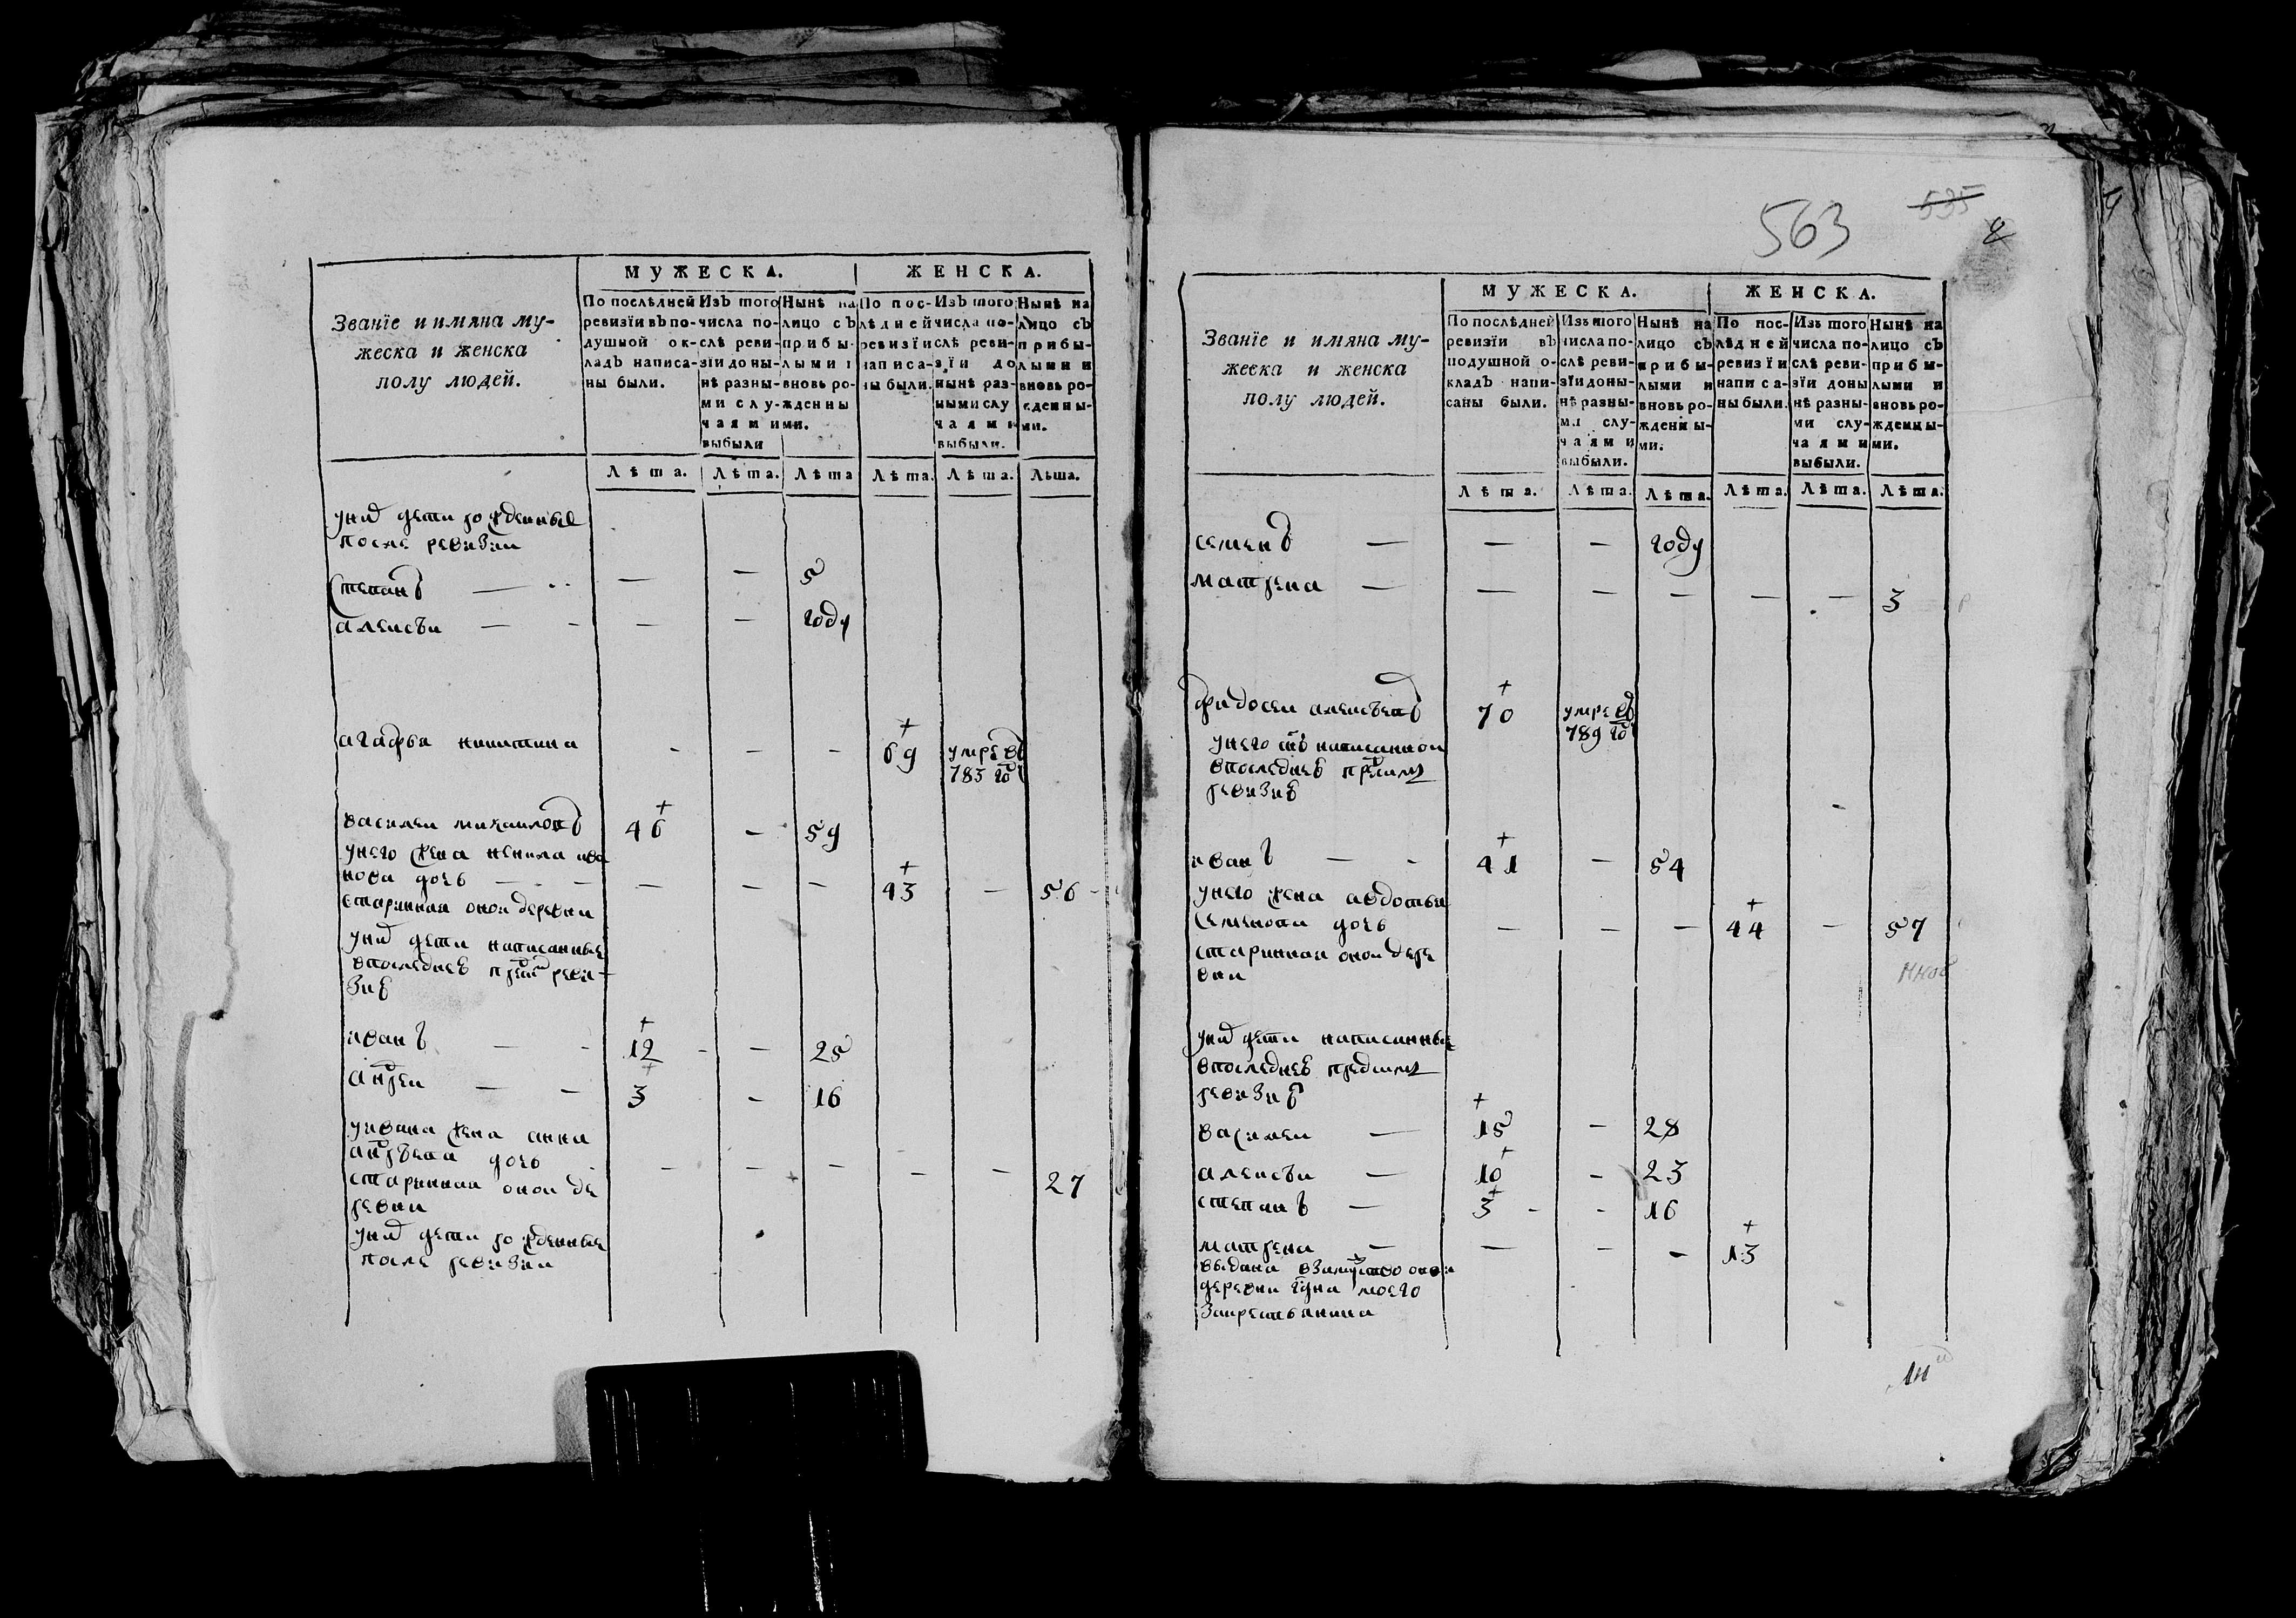 МУЖЕСКА.
ЖЕНСКА.
Званїе и имяна му-
жеска и женска
полу людей.
По послѣдней
ревизїи въ по-
душной ок-
ладъ написа-
ны были.
Изъ того
числа по-
слѣ реви-
зїи доны-
нѣ разны-
ми слу-
чаями
выбыли
Нынѣ на
лицо съ
прибы-
лыми и
вновь ро-
жденны
ми.
По пос-
лѣдней
ревизїи
написа-
ны были.
Изъ того
числа по-
слѣ реви-
зїи до
нынѣ раз-
ными слу
чаями
выбыли.
Нынѣ на
лицо съ
прибы-
лыми и
вновь ро-
жденны-
ми.
Лѣта. Лѣта. Лѣта Лѣта. Лѣта. Лѣта.
уних дети рожденные
после ревизии
степанъ — — — 5
алексѣи — — — — году
агафья никитина - - - 69 умре въ
783 году
василеи михаиловъ 46 - 59
унего жена ненила ива
нова дочь — — — — — 43 — 56
старинная онои деревни
уних дети написанные
впоследнеѣ пред сим реви-
зиѣ
иванъ — - 12 - — 25
андреи — — 3 - 16
уивана жена анна
андрѣева дочь — — — — — 27
старинная онои де
ревни
уних дети рожденные
после ревизии
563
535
МУЖЕСКА.
ЖЕНСКА.
Званїе и имяна му-
жеска и женска
полу людей.
По послѣдней
ревизїи въ
подушной о-
кладъ напи-
саны были.
Изъ того
числа по-
слѣ реви-
зїи доны-
нѣ разны-
ми слу-
чаями
выбыли.
Нынѣ на
лицо съ
прибы-
лыми и
вновь ро-
жденны-
ми.
По пос-
лѣдней
ревизїи
написа-
ны были.
Изъ того
числа по-
слѣ реви-
зїи доны
нѣ разны-
ми слу-
чаями
выбыли.
Нынѣ на
лицо съ
прибы-
лыми и
вновь ро-
жденны-
ми.
Лѣта. Лѣта. Лѣта. Лѣта. Лѣта. Лѣта.
семенъ — — — году
матрена — — — — — — 3
фидосеи алексѣевъ 70 умре въ
789 году
унего написаннои
впоследнеѣ пред сим
ревизиѣ
иванъ — - 41 — 54
унего жена авдотья
семенова дочь — — — 44 — 57
старинная онои дере
вни
уних дети написанные
впоследнеѣ пред сим
ревизиѣ
василеи — 15 - 28
алексѣи — 10 - 23
степанъ — 3 - - 16
матрена — — - - 13
выдана взамужство онои
деревни моего
закрестьянина